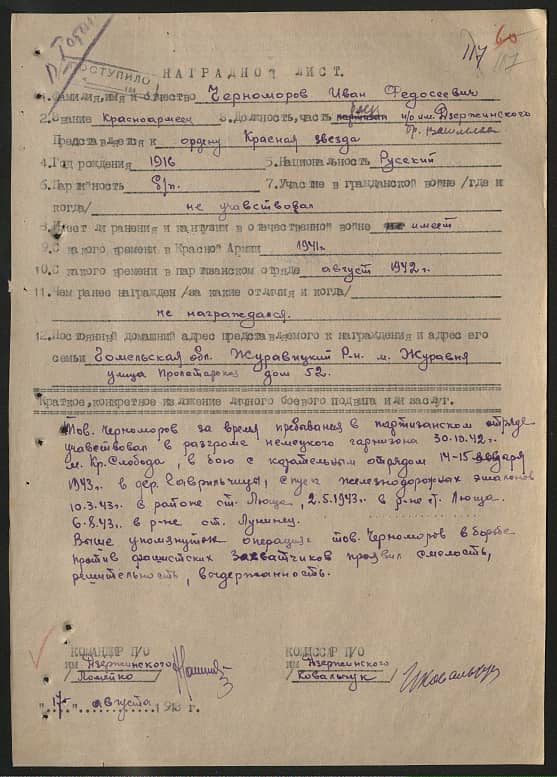 117
60
117
ПОСТУПИЛО
НАГРАДНОЙ ЛИСТ.
1.Фамилия,имя и отчество Черноморов Иван Федосеевич
2.Звание Красноармеец 3.Должность, часть п/о им. Дзержинского
Представляется к ордену Красная звезда
4.Год рождения 1916 5.Национальность Русский
6.Партийность б/п. 7.Участие в гражданской войне /где и
когда/ не учавствовал
8.Имеет ли ранения и контузии в отечественной войне не имеет
9.С какого времени в Красной Армии 1941г.
10.С какого времени в партизанском отряде август 1942г.
11.Чем ранее награжден /за какие отличия и когда/
не награждался.
12.Постоянный домашний адрес представляемого к награждения и адрес его
семьи Гомельская обл. Журавицкий Р-н. м. Журавня
улица Пролетарская дом 52.
Краткое, конкретное изложение личного боевого подвига или заслуг.
Тов. Черноморов за время пребывания в партизанском отряде
учавствовал в разгроме немецкого гарнизона 30.10.42г.
м. Кр. Слобода, в бою с карательным отрядом 14-15 января
1943г. в дер. Гаврильчицы, спуск железнодорожных эшалонов
10.3.43г. в районе ст. Люща, 2.5.1943г. в р-не ст. Люща.
6.8.43г. в р-не ст. Лунинец.
Выше упомянутых операциях тов. Черноморов в борьбе
против фашистских захватчиков проявил смелость,
решительность, выдержанность.
КОМАНДИР П/О КОМИССАР П/О
им Дзержинского им Дзержинского
/Ломейко /Ковальчук
"17" августа 1943 г.